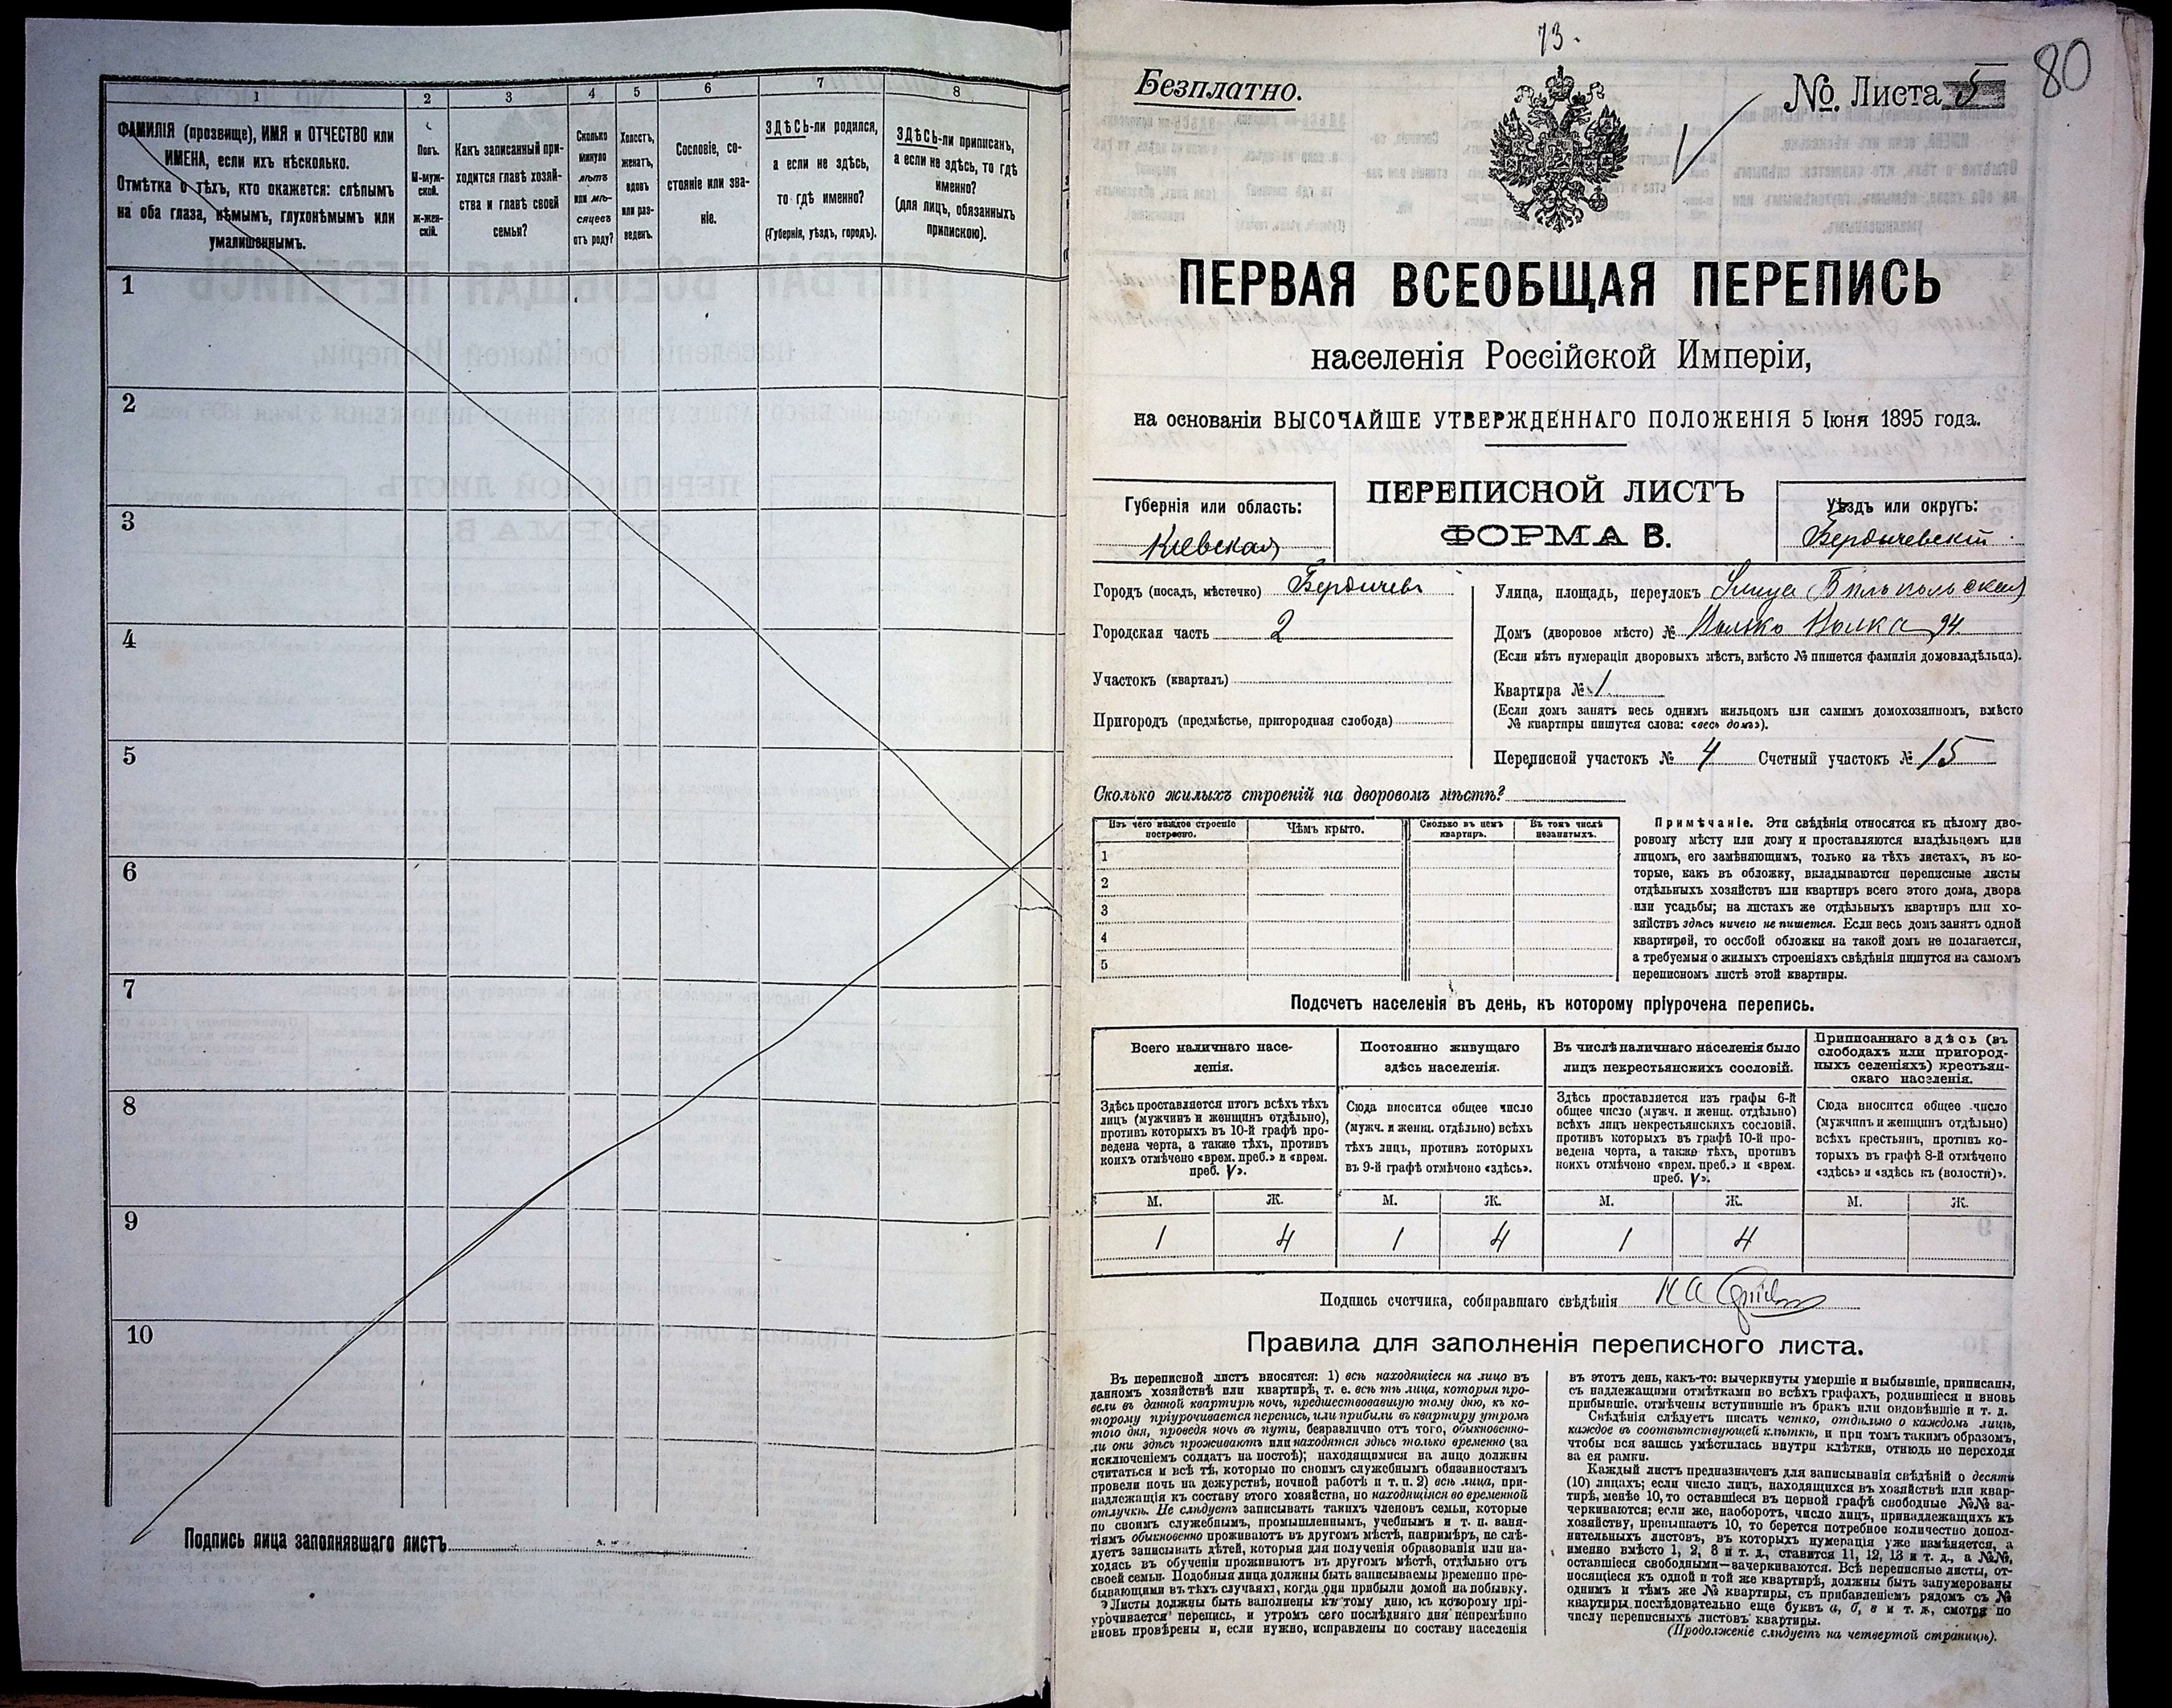 1
2
3
4
5
6
7
8
ФАМИЛІЯ (прозвище), ИМЯ и ОТЧЕСТВО или
ИМЕНА, если ихъ нѣсколько.
Отмѣтка о тѣхъ, кто окажется: слѣпымъ
на оба глаза, нѣмымъ, глухонѣмымъ или
умалишеннымъ.
Полъ.
М-муж-
ской.
Ж-жен-
скій.
Какъ записанный при-
ходится главѣ хозяй-
ства и главѣ своей
семьи?
Сколько
минуло
лѣтъ
или мѣ-
сяцевъ
отъ роду?
Холостъ,
женатъ,
вдовъ
или раз-
веденъ.
Сословіе, со-
стояніе или зва-
ніе.
ЗДѢСЬ-ли родился,
а если не здѣсь,
то гдѣ именно?
(Губернія, уѣздъ, городъ).
ЗДѢСЬ-ли приписанъ,
а если не здѣсь, то гдѣ
именно?
(для лицъ, обязанныхъ
припискою).
1
2
3
4
5
6
7
8
9
10
Подпись лица заполнявшаго листъ
73.
80
Безплатно.
№ Листа 5
ПЕРВАЯ ВСЕОБЩАЯ ПЕРЕПИСЬ
населенія Россійской Имперіи,
на основаніи ВЫСОЧАЙШЕ УТВЕРЖДЕННАГО ПОЛОЖЕНІЯ 5 Іюня 1895 года.
Губернія или область:
Кіевская
ПЕРЕПИСНОЙ ЛИСТЪ
ФОРМА В.
Уѣздъ или округъ:
Бердичевскій
Городъ (посадъ, мѣстечко) Бердичевъ
Городская часть 2
Участокъ (кварталъ)
Пригородъ (предмѣстье, пригородная слобода)
Улица, площадь, переулокъ Улица Бѣлопольская
Домъ (дворовое мѣсто) № 94
(Если нѣтъ нумераціи дворовыхъ мѣстъ, вмѣсто № пишется фамилія домовладѣльца).
Квартира № 1
(Если домъ занятъ весь однимъ жильцомъ или самимъ домохозяиномъ, вмѣсто
№ квартиры пишутся слова: «весь домъ»).
Переписной участокъ № 4 Счетный участокъ № 15
Сколько жилыхъ строеній на дворовомъ мѣстѣ?
Изъ чего каждое строеніе
построено.
Чѣмъ крыто.
Сколько въ немъ
квартиръ.
Въ томъ числѣ
незанятыхъ.
1
2
3
4
5
Примѣчаніе. Эти свѣдѣнія относятся къ цѣлому дво-
ровому мѣсту или дому и проставляются владѣльцемъ или
лицомъ, его замѣняющимъ, только на тѣхъ листахъ, въ ко-
торые, какъ въ обложку, вкладываются переписные листы
отдѣльныхъ хозяйствъ или квартиръ всего этого дома, двора
или усадьбы; на листахъ же отдѣльныхъ квартиръ или хо-
зяйствъ здѣсь ничего не пишется. Если весь домъ занятъ одной
квартирой, то особой обложки на такой домъ не полагается,
а требуемыя о жилыхъ строеніяхъ свѣдѣнія пишутся на самомъ
переписномъ листѣ этой квартиры.
Подсчетъ населенія въ день, къ которому пріурочена перепись.
Всего наличнаго насе-
ленія.
Здѣсь проставляется итогъ всѣхъ тѣхъ
лицъ (мужчинъ и женщинъ отдѣльно),
противъ которыхъ въ 10-й графѣ про-
ведена черта, а также тѣхъ, противъ
коихъ отмѣчено «врем. преб.» и «врем.
преб. V».
Постоянно живущаго
здѣсь населенія.
Сюда вносится общее число
(мужч. и женщ. отдѣльно) всѣхъ
тѣхъ лицъ, противъ которыхъ
въ 9-й графѣ отмѣчено «здѣсь».
Въ числѣ наличнаго населенія было
лицъ некрестьянскихъ сословій.
Здѣсь проставляется изъ графы 6-й
общее число (мужч. и женщ. отдѣльно)
всѣхъ лицъ некрестьянскихъ сословій,
противъ которыхъ въ графѣ 10-й про-
ведена черта, а также тѣхъ, противъ
коихъ отмѣчено «врем. преб.» и «врем.
преб. V».
Приписаннаго здѣсь (въ
слободахъ или пригород-
ныхъ селеніяхъ) крестьян-
скаго населенія.
Сюда вносится общее число
(мужчинъ и женщинъ отдѣльно)
всѣхъ крестьянъ, противъ ко-
торыхъ въ графѣ 8-й отмѣчено
«здѣсь» и «здѣсь къ (волости)».
М. Ж. М. Ж. М. Ж. М. Ж.
1 4 1 4 1 4
Подпись счетчика, собиравшаго свѣдѣнія
Правила для заполненія переписного листа.
Въ переписной листъ вносятся: 1) всѣ находящіеся на лицо въ
данномъ хозяйствѣ или квартирѣ, т. е. всѣ тѣ лица, которыя про-
вели въ данной квартирѣ ночь, предшествовавшую тому дню, къ ко-
торому пріурочивается перепись, или прибыли въ квартиру утромъ
того дня, проведя ночь въ пути, безразлично отъ того, обыкновенно-
ли они здѣсь проживаютъ или находятся здѣсь только временно (за
исключеніемъ солдатъ на постоѣ); находящимися на лицо должны
считаться и всѣ тѣ, которые по своимъ служебнымъ обязанностямъ
провели ночь на дежурствѣ, ночной работѣ и т. п. 2) всѣ лица, при-
надлежащія къ составу этого хозяйства, но находящіяся во временной
отлучкѣ. Не слѣдуетъ записывать такихъ членовъ семьи, которые
по своимъ служебнымъ, промышленнымъ, учебнымъ и т. п. заня-
тіямъ обыкновенно проживаютъ въ другомъ мѣстѣ, напримѣръ, не слѣ-
дуетъ записывать дѣтей, которыя для полученія образованія или на-
ходясь въ обученіи проживаютъ въ другомъ мѣстѣ, отдѣльно отъ
своей семьи. Подобныя лица должны быть записываемы временно пре-
бывающими въ тѣхъ случаяхъ, когда они прибыли домой на побывку.
Листы должны быть заполнены къ тому дню, къ которому прі-
урочивается перепись, и утромъ сего послѣдняго дня непремѣнно
вновь провѣрены и, если нужно, исправлены по составу населенія
въ этотъ день, какъ-то: вычеркнуты умершіе и выбывшіе, приписаны,
съ надлежащими отмѣтками во всѣхъ графахъ, родившіеся и вновь
прибывшіе, отмѣчены вступившіе въ бракъ или овдовѣвшіе и т. д.
Свѣдѣнія слѣдуетъ писать четко, отдѣльно о каждомъ лицѣ,
каждое въ соотвѣтствующей клѣткѣ, и при томъ такимъ образомъ,
чтобы вся запись умѣстилась внутри клѣтки, отнюдь не переходя
за ея рамки.
Каждый листъ предназначенъ для записыванія свѣдѣній о десяти
(10) лицахъ; если число лицъ, находящихся въ хозяйствѣ или квар-
тирѣ, менѣе 10, то оставшіеся въ первой графѣ свободные №№ за-
черкиваются; если же, наоборотъ, число лицъ, принадлежащихъ къ
хозяйству, превышаетъ 10, то берется потребное количество допол-
нительныхъ листовъ, въ которыхъ нумерація уже измѣняется, а
именно вмѣсто 1, 2, 3 и т. д., ставится 11, 12, 13 и т. д., а №№,
оставшіеся свободными—зачеркиваются. Всѣ переписные листы, от-
носящіеся къ одной и той же квартирѣ, должны быть занумерованы
однимъ и тѣмъ же № квартиры, съ прибавленіемъ рядомъ съ №
квартиры последовательно еще буквъ а, б, в и т. д., смотря по
числу переписныхъ листовъ квартиры.
(Продолженіе слѣдуетъ на четвертой страницѣ).